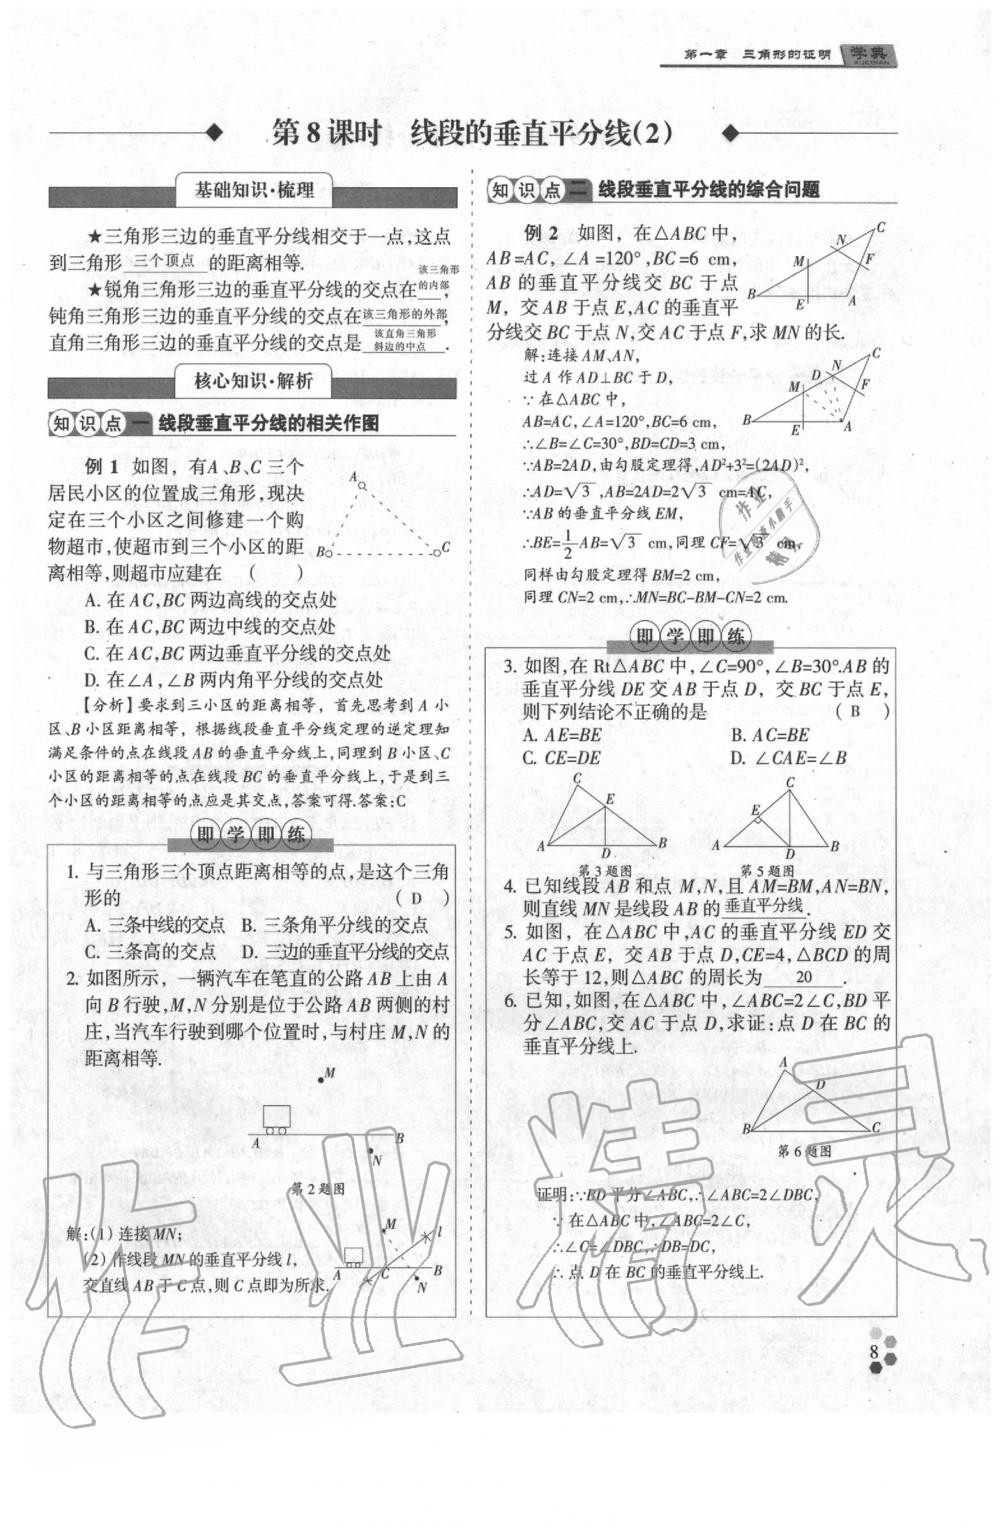 第一章 三角形的证明 学典
XUEDIAN
第8课时 线段的垂直平分线(2)
基础知识·梳理
★三角形三边的垂直平分线相交于一点,这点
到三角形 三个顶点 的距离相等.
★锐角三角形三边的垂直平分线的交点在 该三角形的内部 ,
钝角三角形三边的垂直平分线的交点在 该三角形的外部 ,
直角三角形三边的垂直平分线的交点是 该直角三角形斜边的中点 .
核心知识·解析
知识点一 线段垂直平分线的相关作图
例1 如图，有A、B、C三个
居民小区的位置成三角形,现决
定在三个小区之间修建一个购
物超市,使超市到三个小区的距
离相等,则超市应建在 ( )
A
B
C
A. 在AC,BC两边高线的交点处
B. 在AC,BC两边中线的交点处
C. 在AC,BC两边垂直平分线的交点处
D. 在∠A,∠B两内角平分线的交点处
【分析】要求到三小区的距离相等，首先思考到A小
区、B小区距离相等，根据线段垂直平分线定理的逆定理知
满足条件的点在线段AB的垂直平分线上,同理到B小区、C
小区的距离相等的点在线段BC的垂直平分线上,于是到三
个小区的距离相等的点应是其交点,答案可得.答案:C
即学即练
1. 与三角形三个顶点距离相等的点,是这个三角
形的 ( D )
A. 三条中线的交点 B. 三条角平分线的交点
C. 三条高的交点 D. 三边的垂直平分线的交点
2. 如图所示，一辆汽车在笔直的公路AB上由A
向B行驶,M,N分别是位于公路AB两侧的村
庄,当汽车行驶到哪个位置时,与村庄M,N的
距离相等.
M
A
B
N
第2题图
解:(1)连接MN;
(2)作线段MN的垂直平分线l,
交直线AB于C点,则C点即为所求.
M
l
A
C
N
B
知识点二 线段垂直平分线的综合问题
例2 如图，在△ABC中，
AB=AC，∠A=120°,BC=6 cm,
AB的垂直平分线交BC于点
M，交AB于点E,AC的垂直平
分线交BC于点N,交AC于点F,求MN的长.
C
N
M
F
B
E
A
解:连接AM、AN,
过A作AD⊥BC于D,
∵在△ABC中,
AB=AC,∠A=120°,BC=6 cm,
∴∠B=∠C=30°,BD=CD=3 cm,
∵AB=2AD,由勾股定理得,AD²+3²=(2AD)²,
∴AD=√3 ,AB=2AD=2√3 cm=AC,
∵AB的垂直平分线EM,
∴BE=1/2AB=√3 cm,同理CF=√3 cm,
同样由勾股定理得BM=2 cm,
同理CN=2 cm,∴MN=BC-BM-CN=2 cm.
C
N
D
M
F
B
E
A
即学即练
3. 如图,在Rt△ABC中,∠C=90°,∠B=30°.AB的
垂直平分线DE交AB于点D，交BC于点E,
则下列结论不正确的是 ( B )
A. AE=BE B. AC=BE
C. CE=DE D. ∠CAE=∠B
C
E
A
D
B
第3题图
C
E
A
D
B
第5题图
4. 已知线段AB和点M,N,且AM=BM,AN=BN,
则直线MN是线段AB的 垂直平分线 .
5. 如图，在△ABC中,AC的垂直平分线ED交
AC于点E，交AB于点D,CE=4,△BCD的周
长等于12,则△ABC的周长为 20 .
6. 已知,如图,在△ABC中,∠ABC=2∠C,BD平
分∠ABC,交AC于点D,求证:点D在BC的
垂直平分线上.
A
D
B
C
第6题图
证明:∵BD平分∠ABC,∴∠ABC=2∠DBC,
∵在△ABC中,∠ABC=2∠C,
∴∠C=∠DBC,∴DB=DC,
∴点D在BC的垂直平分线上.
8
作业精灵